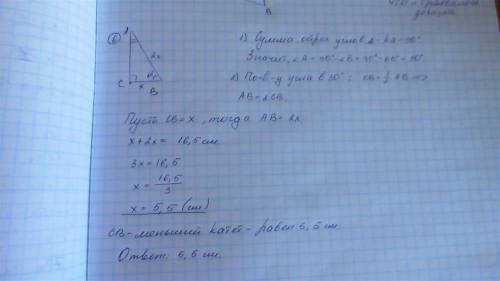 6
A
2x
C
x
B
1) Сумма острых углов Δ-ка = 90°
Значит, ∠A = 90° - ∠B = 90° - 60° = 30°.
2) По св-у угла в 30°: CB = ½ AB =>
AB = 2CB.
Пусть CB = x, тогда AB = 2x
x + 2x = 16,5 см
3x = 16,5
x = 16,5/3
x = 5,5 (см)
CB - меньший катет - равен 5,5 см
Ответ: 5,5 см.